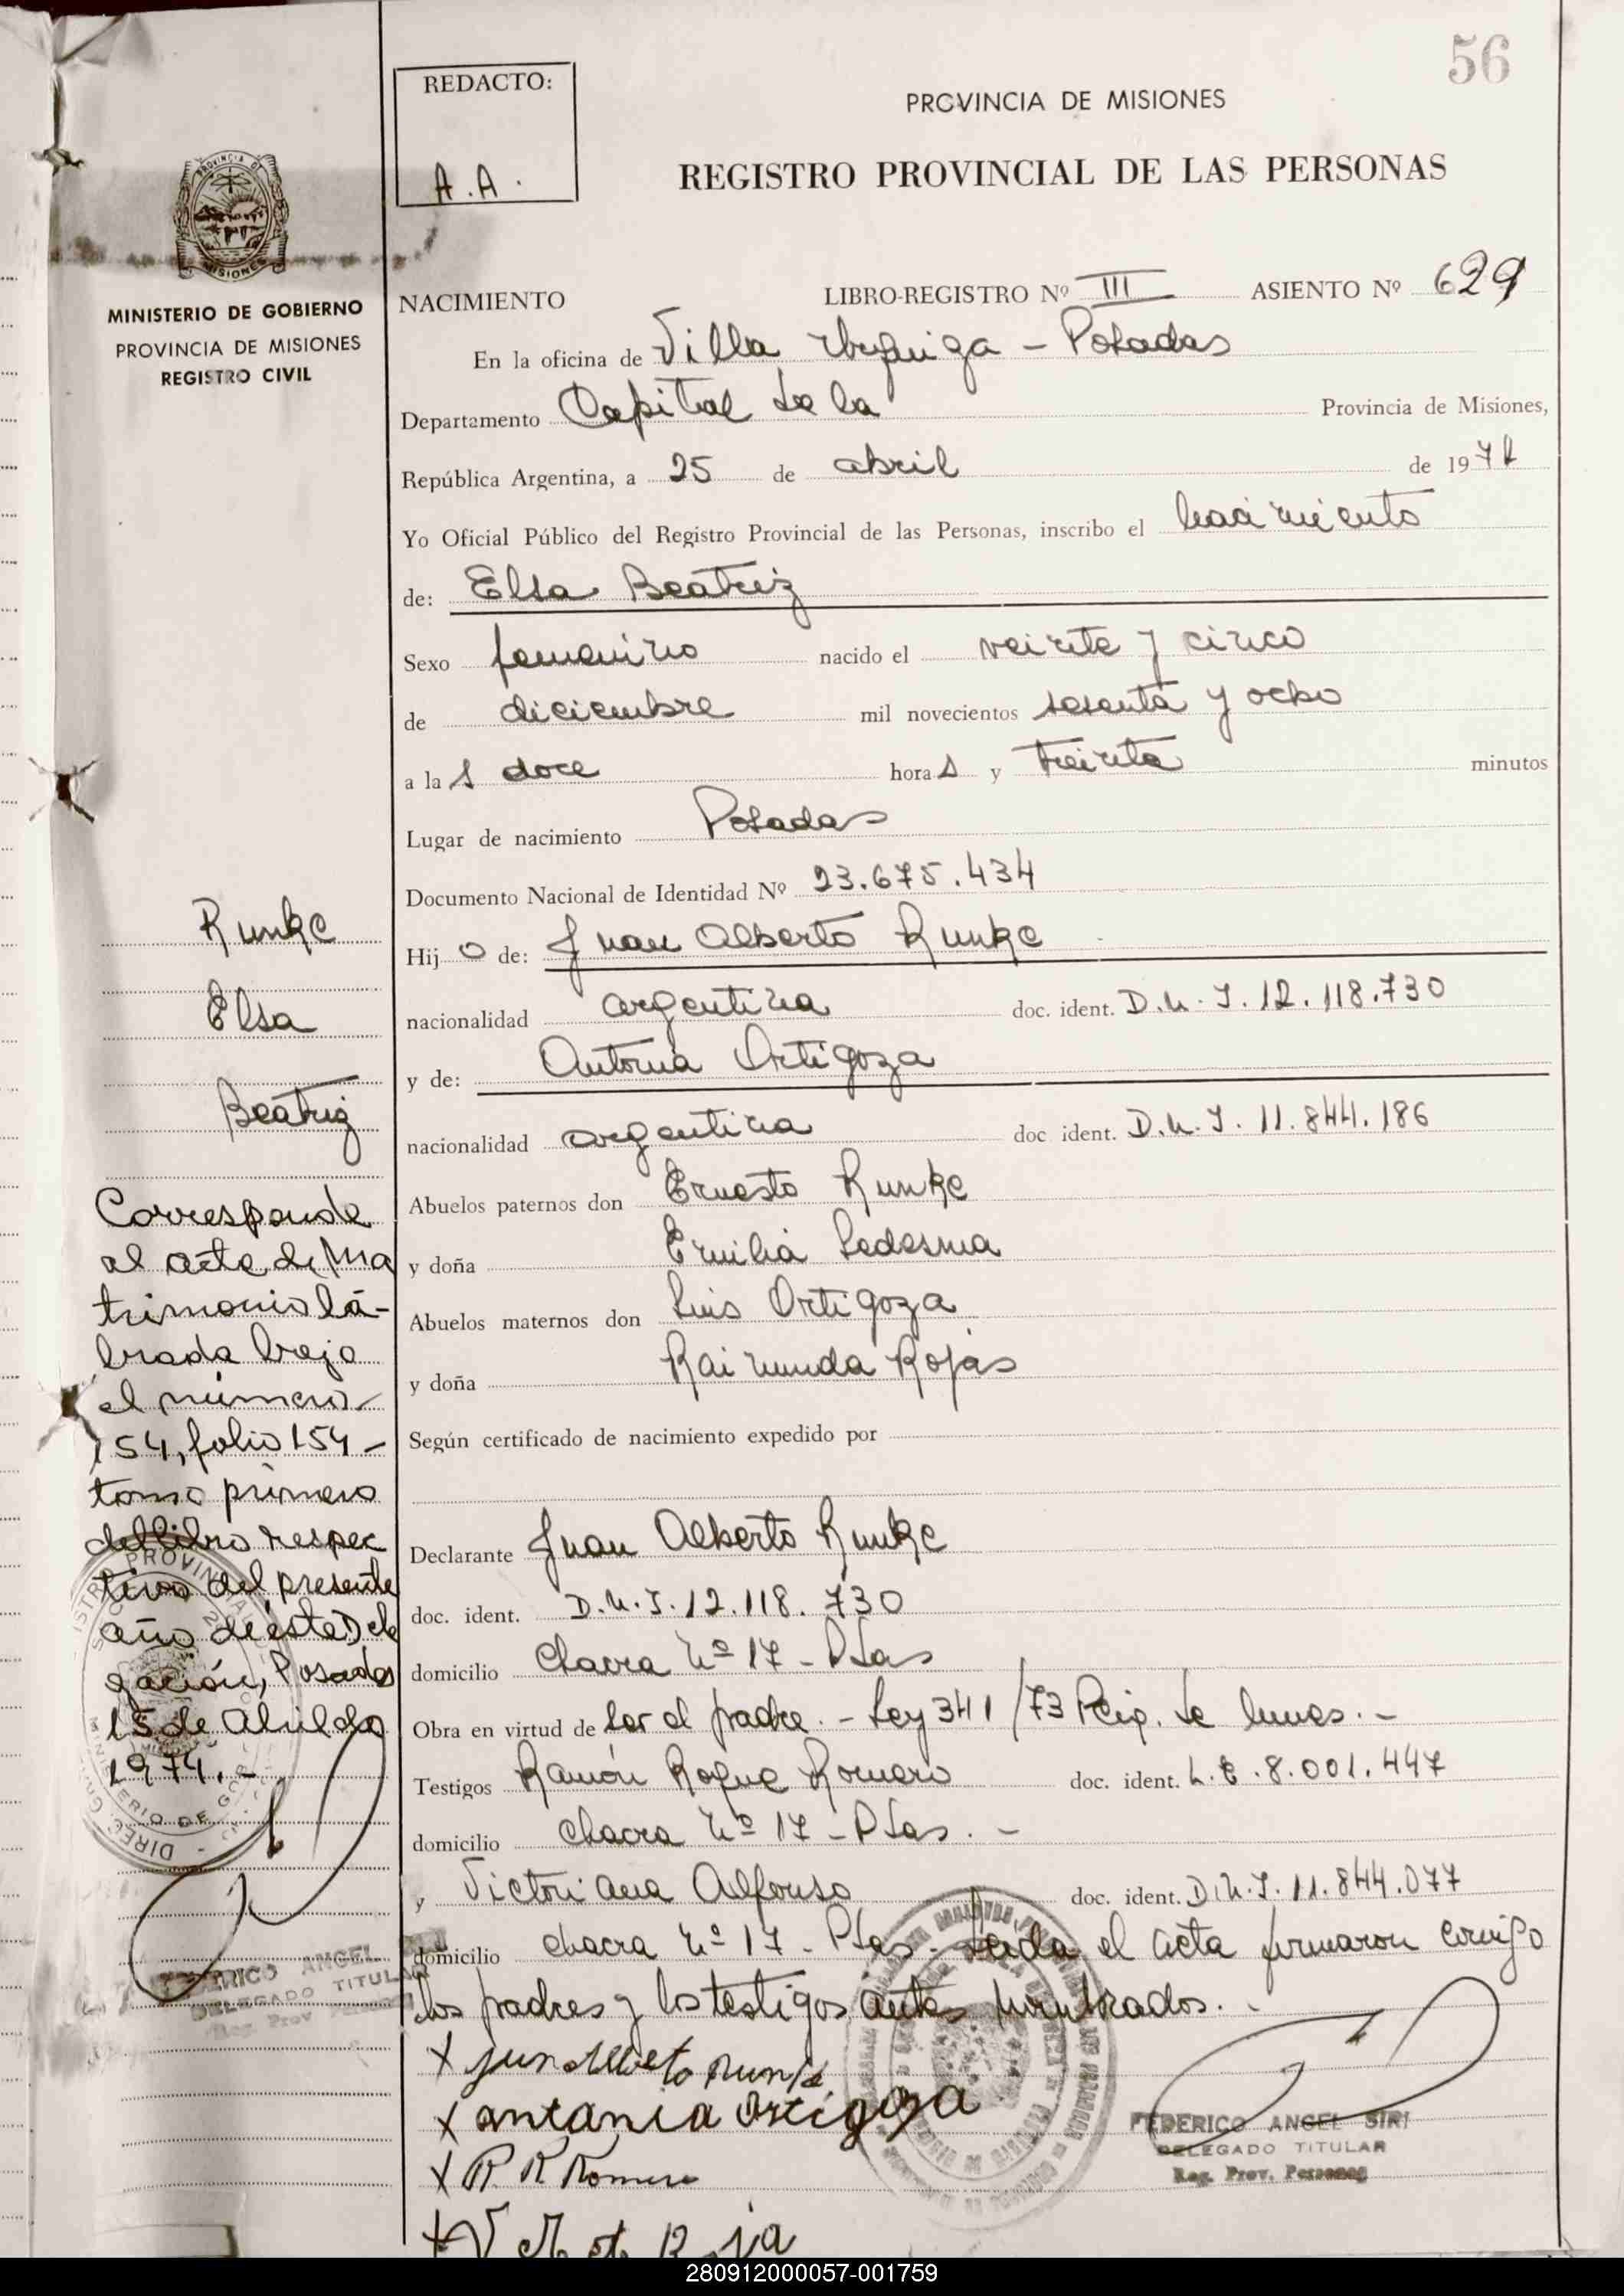 56
REDACTO:
A.A.
PROVINCIA DE MISIONES
REGISTRO PROVINCIAL DE LAS PERSONAS
MINISTERIO DE GOBIERNO
PROVINCIA DE MISIONES
REGISTRO CIVIL
NACIMIENTO LIBRO-REGISTRO Nº III ASIENTO Nº 629
En la oficina de Villa - Posadas
Departamento Capital de la Provincia de Misiones,
República Argentina, a 25 de abril de 1974
Yo Oficial Público del Registro Provincial de las Personas, inscribo el nacimiento
de: Elsa Beatriz
Sexo femenino nacido el veinte y cinco
de diciembre mil novecientos sesenta y ocho
a la s doce hora s y treinta minutos
Lugar de nacimiento Posadas
Documento Nacional de Identidad Nº 23.675.434
Hij o de: Juan Alberto Runke
nacionalidad argentina doc. ident. D.N.I. 12.118.730
y de: Antonia Ortigoza
nacionalidad argentina doc ident. D.N.I. 11.844.186
Abuelos paternos don Ernesto Runke
y doña Emilia Ledesma
Abuelos maternos don Luis Ortigoza
y doña Raimunda Rojas
Según certificado de nacimiento expedido por
Declarante Juan Alberto Runke
doc. ident. D.N.I. 12.118.730
domicilio Chacra Nº 17 - Pdas
Obra en virtud de ser el padre. - Ley 341/73
Testigos Ramón Roque Romero doc. ident. L.E. 8.001.447
domicilio chacra Nº 17 - Pdas. -
y Victoriana Alfonso doc. ident. D.N.I. 11.844.077
domicilio chacra Nº 17 - Pdas. Leida el acta firmaron conmigo
los padres y los testigos antes nombrados. -
X juan Alberto Runke
X antania Ortigoza
X R R Romero
X
FEDERICO ANGEL SIRI
DELEGADO TITULAR
Reg. Prov. Personas
Runke
Elsa
Beatriz
Corresponde
al acta de Ma
trimonio la-
brada bajo
el número
154, folio 154 -
tomo primero
del libro respec
tivo del presente
año de ésta Dele
gación, Posadas
15 de Abril de
1974. -
FEDERICO ANGEL
DELEGADO TITULAR
Reg. Prov
280912000057-001759